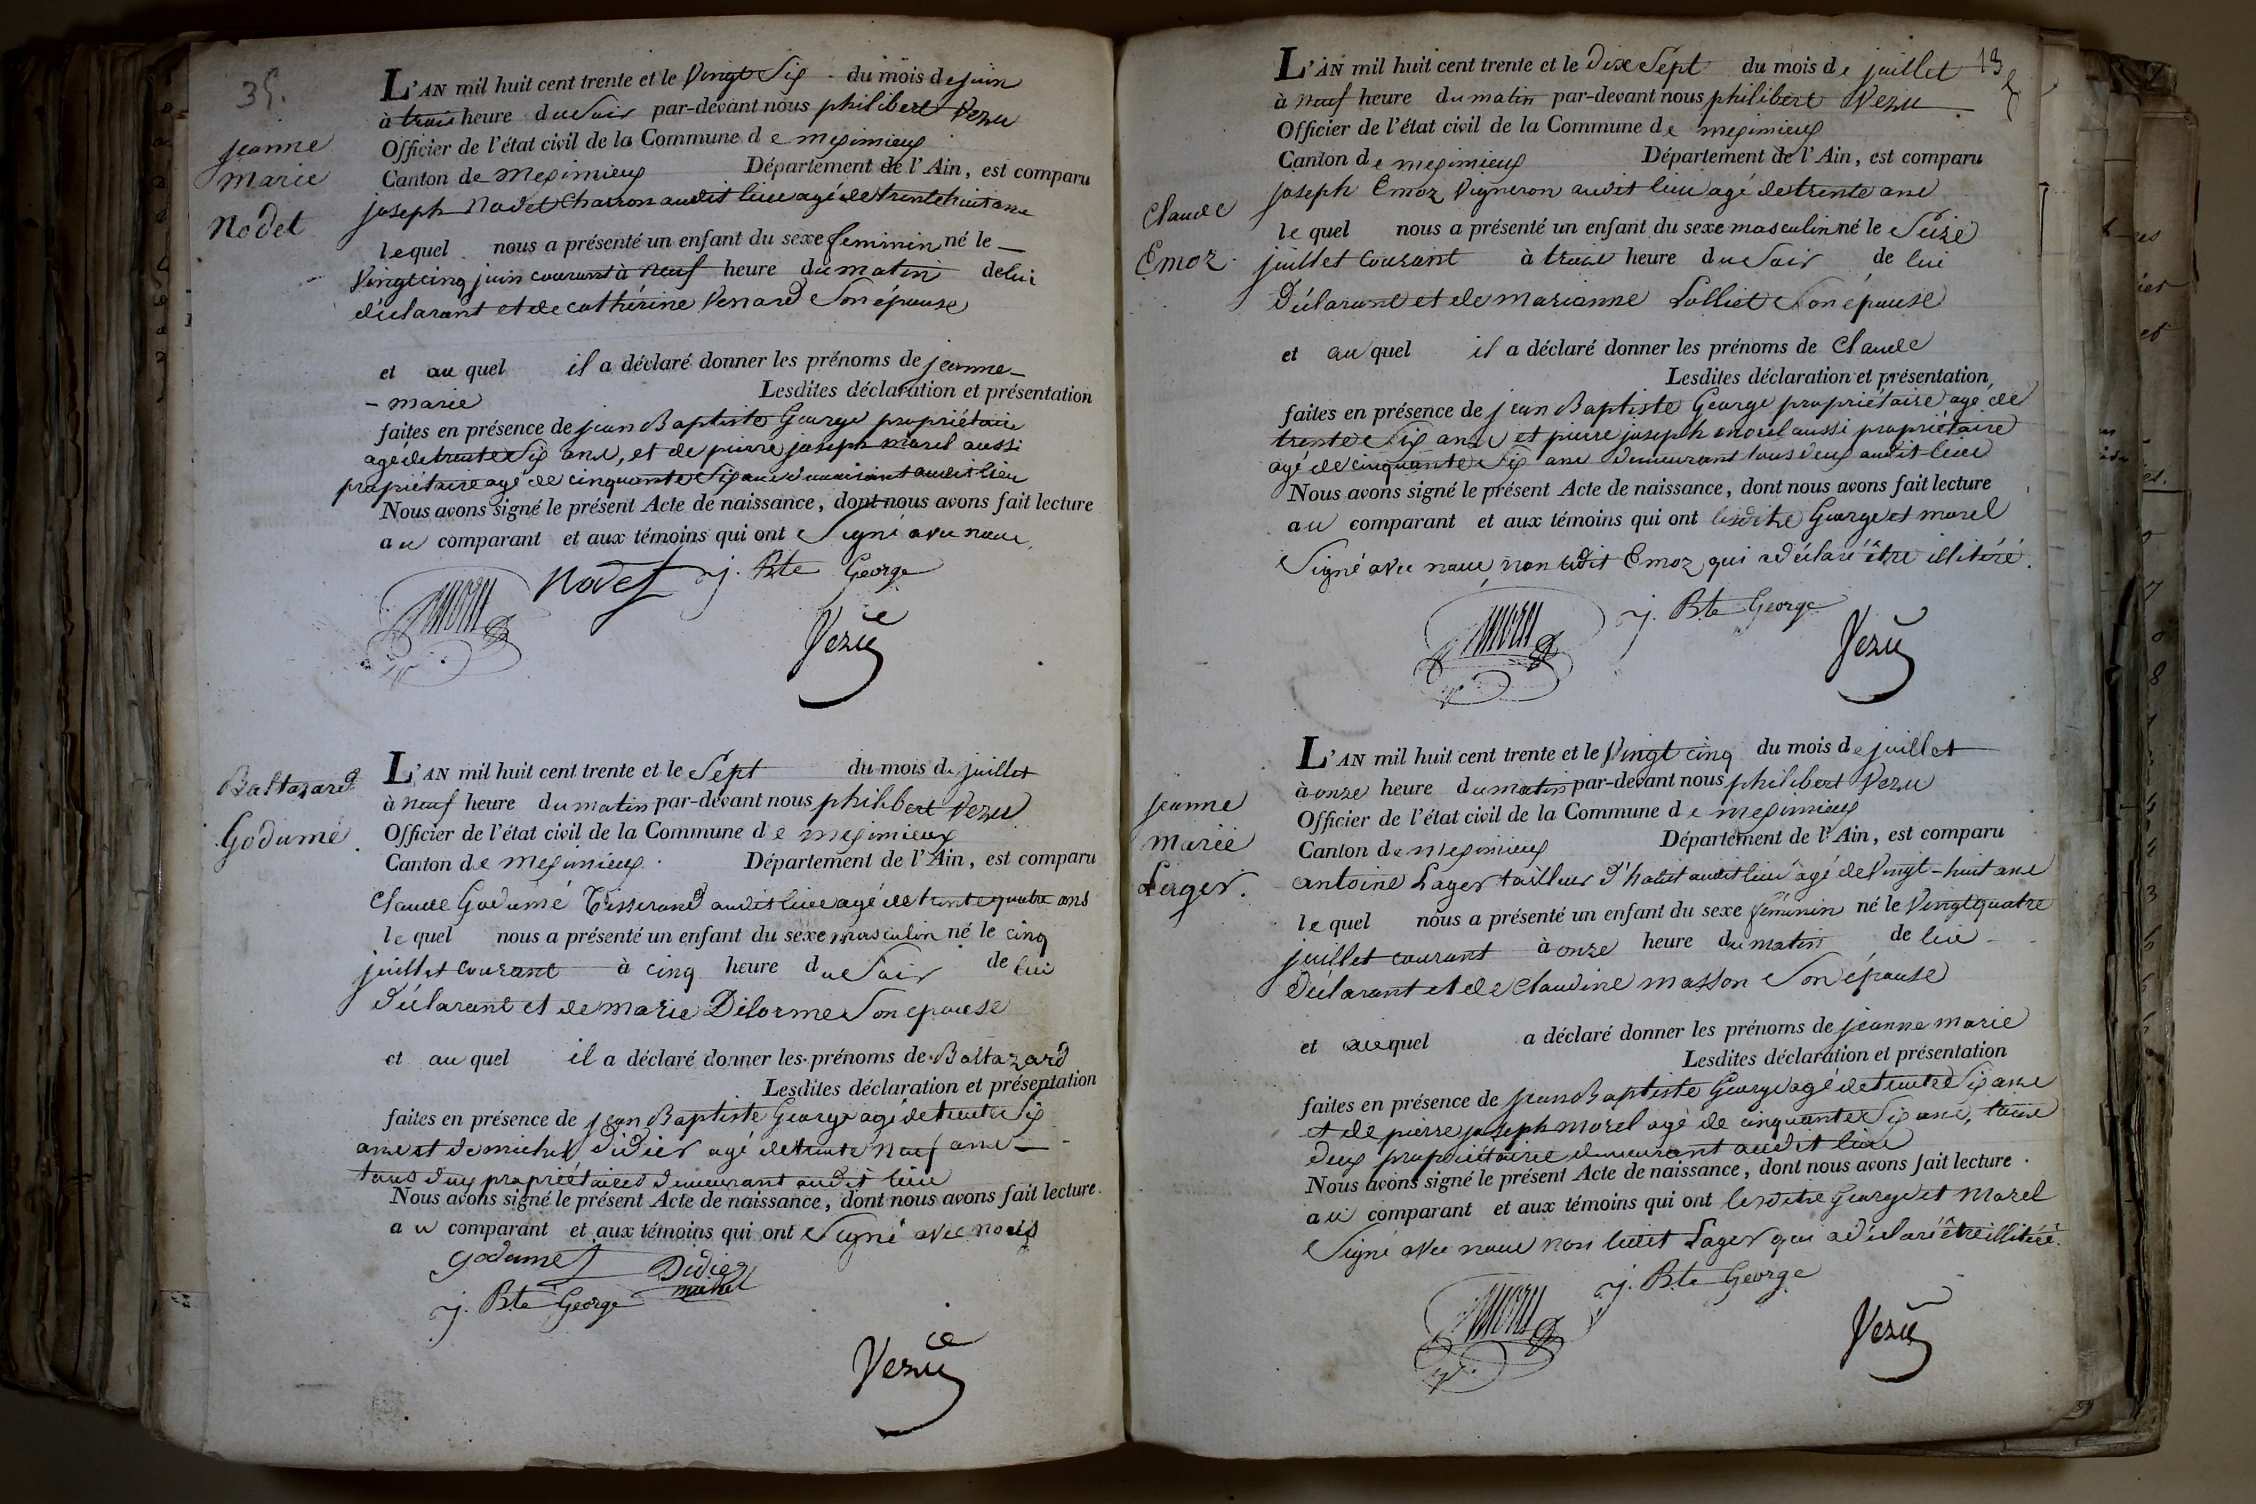 35.
jeanne
marie
Nodet
L'AN mil huit cent trente et le Vingt Six du mois de juin
à trois heure du Soir par-devant nous philibert Vezu
Officier de l'état civil de la Commune de meximieux
Canton de meximieux Département de l'Ain, est comparu
joseph Nodet Charron audit lieu agé de trente huit ans
lequel nous a présenté un enfant du sexe feminin né le
Vingt cinq juin courant à neuf heure du matin de lui
déclarant et de cathérine Venard Son épouse
et au quel il a déclaré donner les prénoms de jeanne-
- marie Lesdites déclaration et présentation
faites en présence de jean Baptiste George propriétaire
agé de trente Six ans, et de pierre joseph morel aussi
propriétaire agé de cinquante Six ans demeurant audit lieu
Nous avons signé le présent Acte de naissance, dont nous avons fait lecture
au comparant et aux témoins qui ont Signé avec nous
Nodet j. Bte George
morel
Vezu
Baltazard
Godumé
L'AN mil huit cent trente et le Sept du mois de juillet
à neuf heure du matin par-devant nous philibert Vezu
Officier de l'état civil de la Commune de meximieux
Canton de meximieux. Département de l'Ain, est comparu
Claude Godumé Tisserand audit lieu agé de trente quatre ans
le quel nous a présenté un enfant du sexe masculin né le cinq
juillet courant à cinq heure du Soir de lui
Déclarant et de marie Delorme Son epouse
et au quel il a déclaré donner les prénoms de Baltazard
Lesdites déclaration et présentation
faites en présence de jean Baptiste George agé de trente Six
ans et de michel Didier agé de trente neuf ans
tous deux propriétaires demeurant audit lieu
Nous avons signé le présent Acte de naissance, dont nous avons fait lecture
au comparant et aux témoins qui ont Signé avec nous
Godumet Didier
michel
j. Bte George
Vezu
13
Claude
Emoz
L'AN mil huit cent trente et le Dix Sept du mois de juillet
à neuf heure du matin par-devant nous philibert Vezu
Officier de l'état civil de la Commune de meximieux
Canton de meximieux Département de l'Ain, est comparu
joseph Emoz Vigneron audit lieu agé de trente ans
le quel nous a présenté un enfant du sexe masculin né le Seize
juillet courant à trois heure du Soir de lui
Déclarant et de marianne Lolliet Son épouse
et au quel il a déclaré donner les prénoms de Claude
Lesdites déclaration et présentation
faites en présence de jean Baptiste George propriétaire agé de
trente Six ans et pierre joseph morel aussi propriétaire
agé de cinquante Six ans demeurant tous deux audit lieu
Nous avons signé le présent Acte de naissance, dont nous avons fait lecture
au comparant et aux témoins qui ont lesdits George et morel
Signé avec nous, non ledit Emoz qui a déclaré être illitéré.
morel j. Bte George
Vezu
jeanne
marie
Lager.
L'AN mil huit cent trente et le Vingt cinq du mois de juillet
à onze heure du matin par-devant nous philibert Vezu
Officier de l'état civil de la Commune de meximieux
Canton de meximieux Département de l'Ain, est comparu
antoine Lager tailleur d'habit audit lieu âgé de Vingt-huit ans
le quel nous a présenté un enfant du sexe féminin né le Vingt quatre
juillet courant à onze heure du matin de lui
Déclarant et de Claudine masson Son épouse
et auquel a déclaré donner les prénoms de jeanne marie
Lesdites déclaration et présentation
faites en présence de jean Baptiste George agé de trente Six ans
et de pierre joseph morel agé de cinquante Six ans, tous
deux propriétaires demeurant audit lieu
Nous avons signé le présent Acte de naissance, dont nous avons fait lecture.
au comparant et aux témoins qui ont lesdits George et Morel
Signé avec nous non ledit Lager qui a déclaré être illitéré.
morel j. Bte George
Vezu